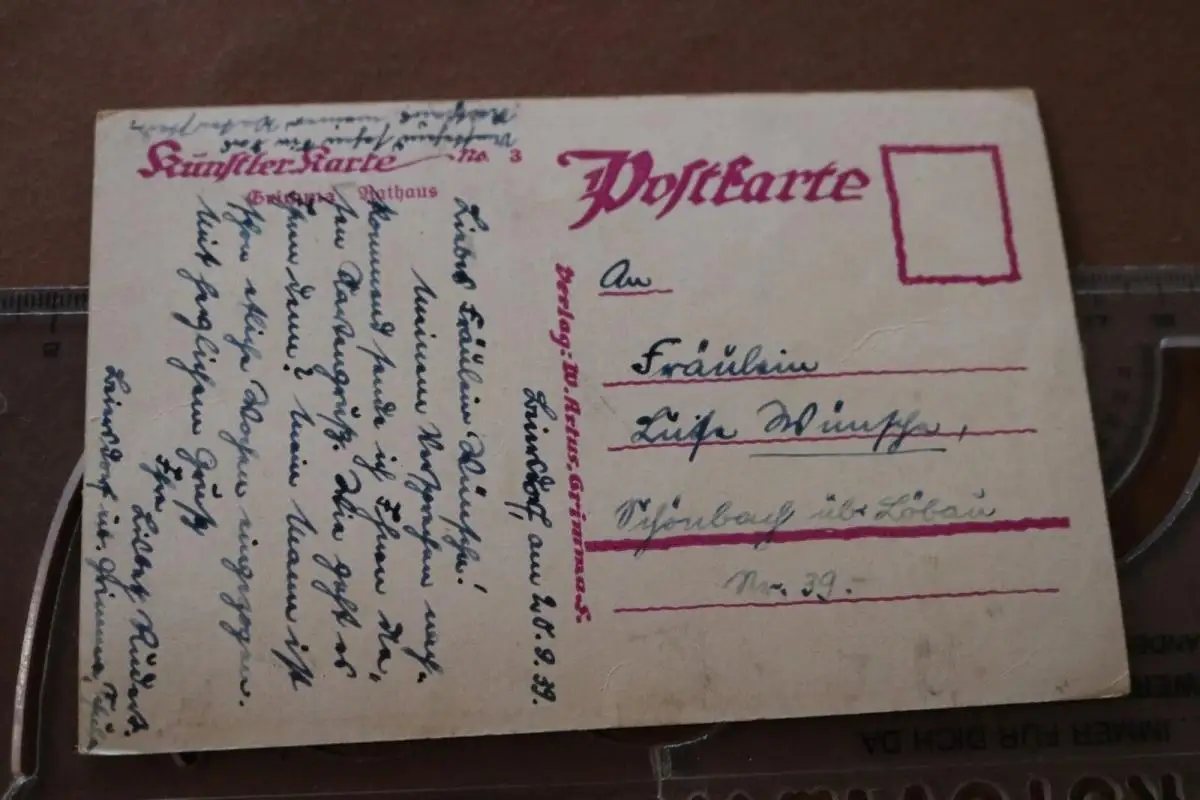 Künstler Karte No. 3
Grimma Rathaus
Postkarte
Verlag: W. Artus, Grimma S.
An
Fräulein
Luise Wünsche,
Schönbach üb. Löbau
Nr. 39.
am 20.9.39.
Liebes Fräulein Wünsche!
Meinem Versprechen nach-
kommend sende ich Ihnen die,
sen Kartengruß. Wie geht es
Ihnen denn? Mein Mann ist
schon etliche Wochen eingezogen.
Mit herzlichem Gruß
Ihre
üb. Grimma,
IMMER FÜR DICH DA